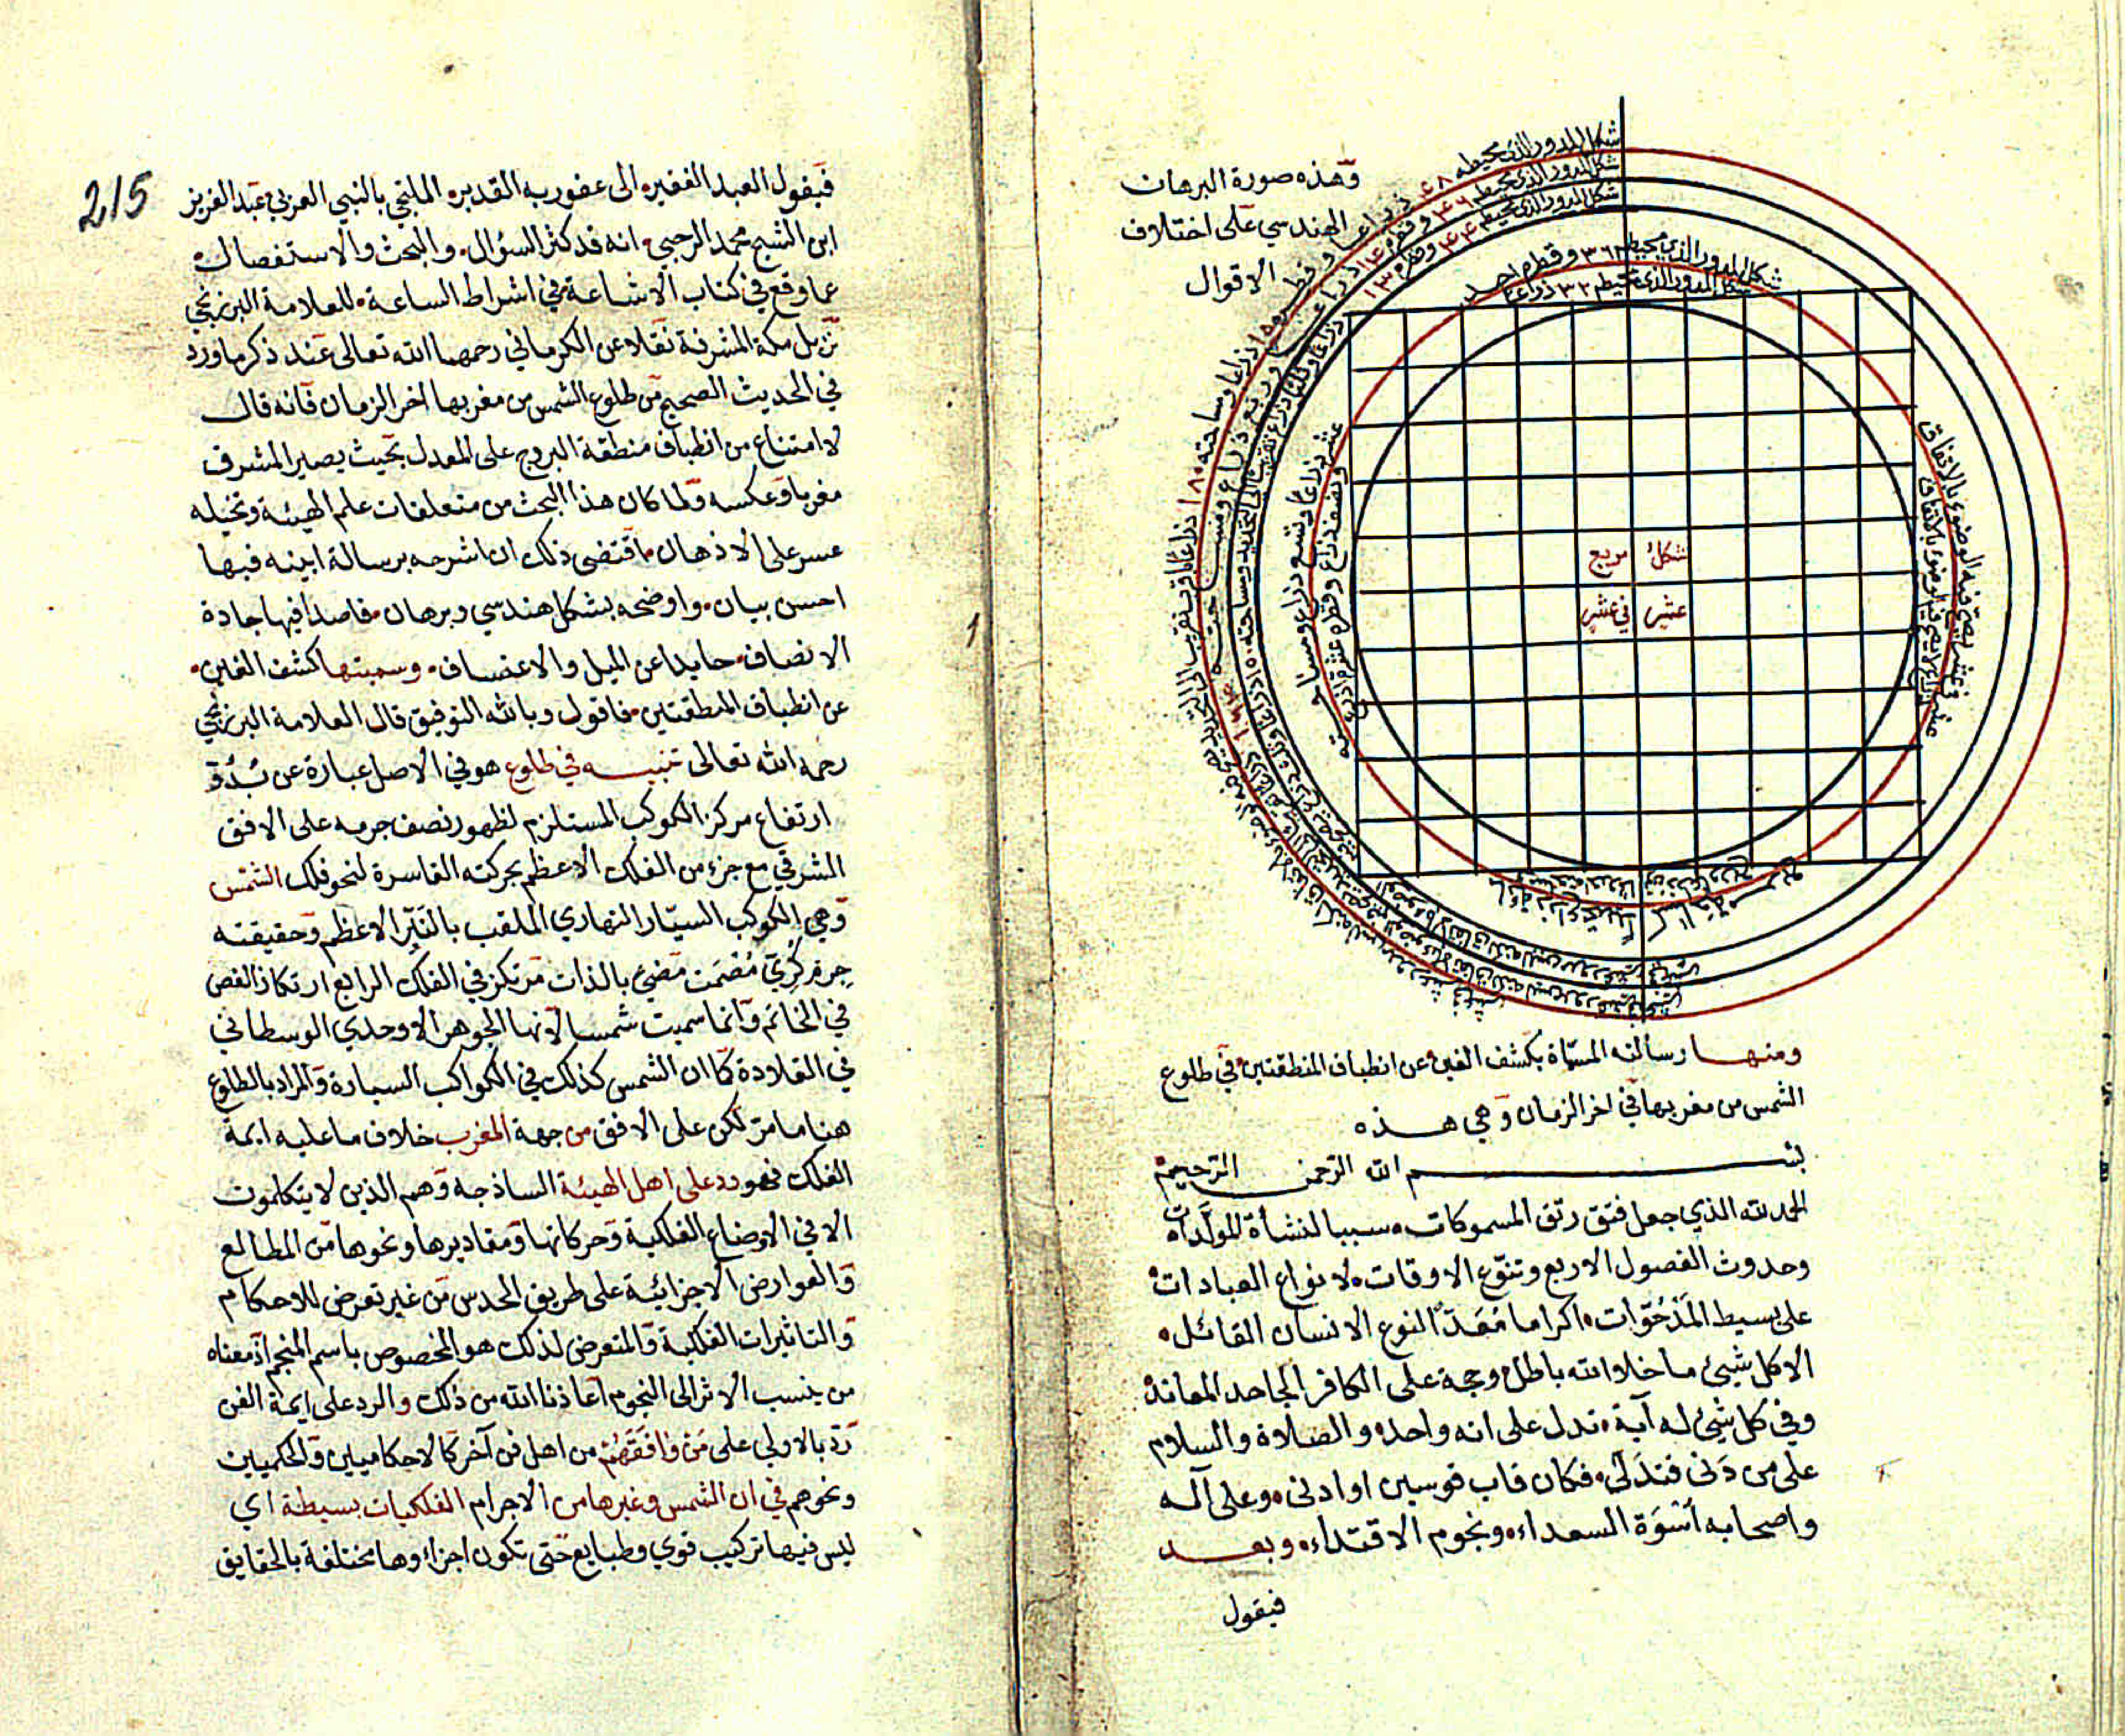 وهذه صورة البرهان
الهندسي على اختلاف
الاقوال
شكل المدور الذي محيطه ٤٨ ذراعا وقطره ١٥ ذراعا ومساحته ١٨٠ ذراعا
شكل المدور الذي محيطه ٤٦ وقطره ١٤ ذراعا
شكل المدور الذي محيطه ٤٤ وقطره ١٣ ذراعا
شكل المدور الذي محيطه ٣٦ وقطره احد
عشر ذراعا وتسع ذراع ومساحته
شكل المدور الذي محيطه ٣٢ ذراعا
ونصف ذراع وقطره عشرة اذرع
شكل مربع
عشر في عشر
ومنها رسالته المسماة بكشف الغين عن انطباق المنطقتين في طلوع
الشمس من مغربها في اخر الزمان وهي هذه
بسم الله الرحمن الرحيم
الحمد لله الذي جعل فتق رتق المسموكات سببا لنشأة المولدات
وحدوث الفصول الاربع وتنوع الاوقات لانواع العبادات
على بسيط المدحوات اكراما مُعَدّا لنوع الانسان القائل
الا كل شيئ ما خلا الله باطل وحجة على الكافر الجاحد المعاند
وفي كل شيئ له آية تدل على انه واحد والصلاة والسلام
على من دَنى فتدلى فكان قاب قوسين او ادنى وعلى آله
واصحابه اُسْوَة السعداء ونجوم الاقتداء وبعد
فيقول
215
فيقول العبد الفقير الى عفو ربه القدير الملتجي بالنبي العربي عبد العزيز
ابن الشيخ محمد الرحبي انه قد كثر السؤال والبحث والاستفصال
عما وقع في كتاب الاشاعة في اشراط الساعة للعلامة البرزنجي
نزيل مكة المشرفة نقلا عن الكرماني رحمهما الله تعالى عند ذكر ما ورد
في الحديث الصحيح من طلوع الشمس من مغربها اخر الزمان فانه قال
لا امتناع من انطباق منطقة البروج على المعدل بحيث يصير المشرق
مغربا وعكسه ولما كان هذا البحث من متعلقات علم الهيئة وتخيله
عسر على الاذهان اقتضى ذلك ان اشرحه برسالة ابينه فيها
احسن بيان واوضحه بشكل هندسي وبرهان قاصدا فيها جادة
الانصاف حايدا عن الميل والاعتساف وسميتها كشف الغين
عن انطباق المنطقتين فاقول وبالله التوفيق قال العلامة البرزنجي
رحمه الله تعالى تنبيه في طلوع هو في الاصل عبارة عن بُدُوّ
ارتفاع مركز الكوكب المستلزم لظهور نصف جرمه على الافق
المشرقي مع جزء من الفلك الاعظم بحركته القاسرة لنحو فلك الشمس
وهي الكوكب السيّار النهاري الملقب بالنَيّر الاعظم وحقيقته
جرم كُرِيّ مُصْمَت مضيئ بالذات مرتكز في الفلك الرابع ارتكاز الفص
في الخاتم وانما سميت شمسا لانها الجوهر الاوحدي الوسطاني
في القلادة كما ان الشمس كذلك في الكواكب السيارة والمراد بالطلوع
هنا ما مرّ لكن على الافق من جهة المغرب خلاف ما عليه ايمة
الفلك فهو رد على اهل الهيئة الساذجة وهم الذين لا يتكلمون
الا في الاوضاع الفلكية وحركاتها ومقاديرها ونحوها من المطالع
والعوارض الاجزائية على طريق الحدس من غير تعرض للاحكام
والتاثيرات الفلكية والمتعرض لذلك هو المخصوص باسم المنجم اذ معناه
من ينسب الاثر الى النجوم اعاذنا الله من ذلك والرد على ايمة الفن
رَدّ بالاولى على مَن وَافَقَهُمْ من اهل فن آخر كالاحكاميين والحكميين
ونحوهم في ان الشمس وغيرها من الاجرام الفلكيات بسيطة اي
ليس فيها تركيب قوي وطبايع حتى تكون اجزاؤها مختلفة بالحقايق